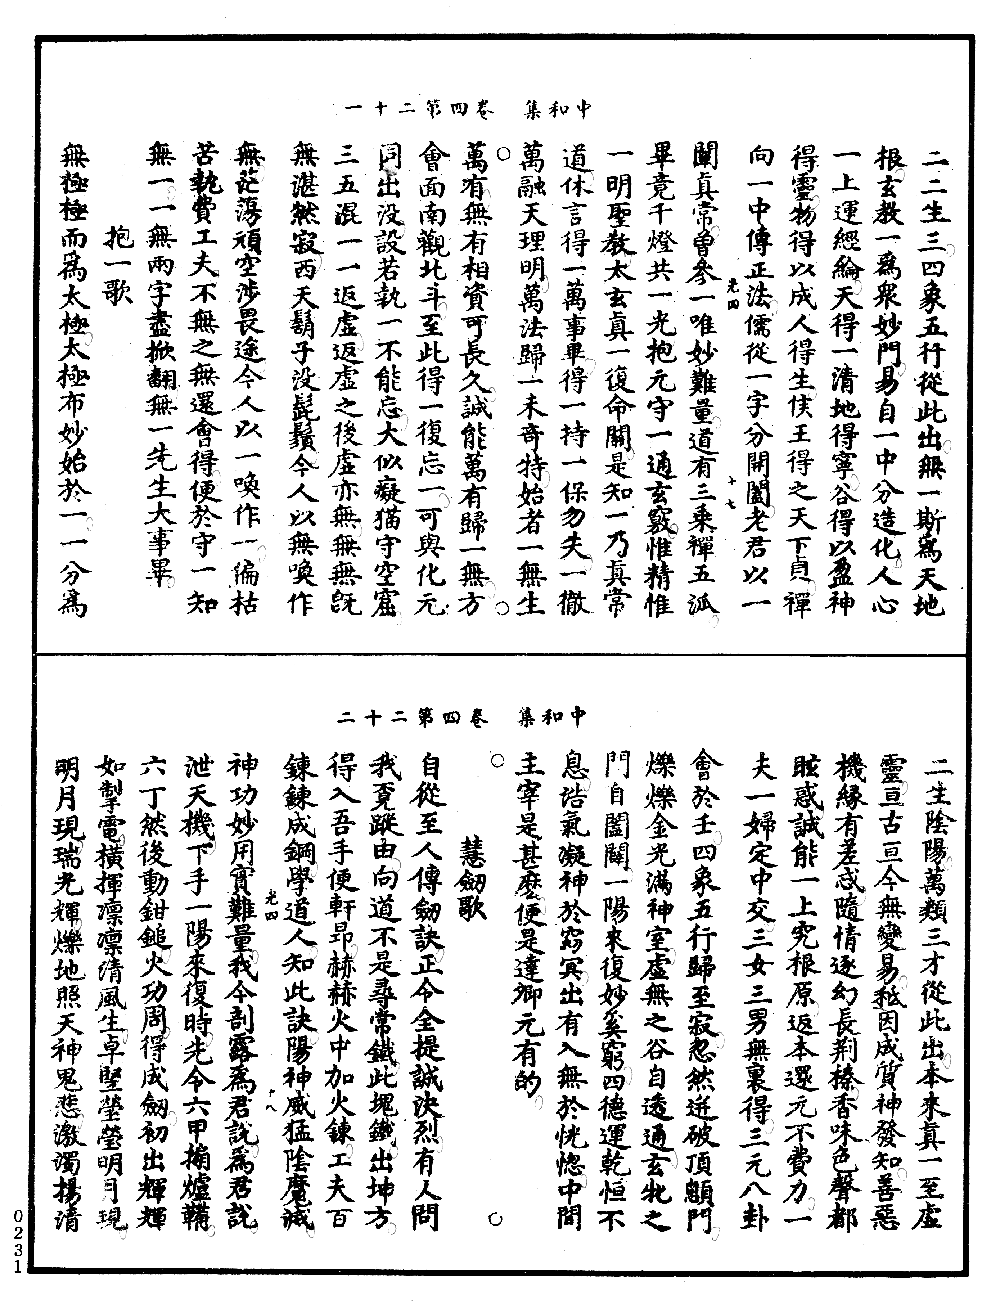 中和集　卷四第二十一
二二生三四象五行從此出無一斯爲天地
根玄教一爲衆妙門易自一中分造化人心
一上運經綸天得一清地得寧谷得以盈神
得靈物得以成人得生侯王得之天下貞禪
向一中傳正法儒從一字分開闔老君以一
光四　十七
闡真常曾參一唯妙難量道有三乘禪五派
畢竟千燈共一光抱元守一通玄竅惟精惟
一明聖教太玄真一復命關是知一乃真常
道休言得一萬事畢得一持一保勿失一徹
萬融天理明萬法歸一未奇特始者一無生
萬有無有相資可長久誠能萬有歸一無方
會面南觀北斗至此得一復忘一可與化元
同出没設若執一不能忘大似癡猫守空窟
三五混一一返虛返虛之後虛亦無無無旣
無湛然寂西天鬍子没髭鬚今人以無喚作
無茫蕩頑空涉畏途今人以一喚作一偏枯
苦執費工夫不無之無還會得便於守一知
無一一無兩字盡掀翻無一先生大事畢
抱一歌
無極極而爲太極太極布妙始於一一分爲
中和集　卷四第二十二
二生陰陽萬類三才從此出本來真一至虛
靈亘古亘今無變易秖因成質神發知善惡
機緣有差惑隨情逐幻長荆榛香味色聲都
眩惑誠能一上究根原返本還元不費力一
夫一婦定中交三女三男無裏得三元八卦
會於壬四象五行歸至寂忽然迸破頂顖門
爍爍金光滿神室虛無之谷自透通玄牝之
門自闔闢一陽來復妙奚窮四德運乾恒不
息浩氣凝神於窈冥出有入無於恍惚中間
主宰是甚麽便是達卿元有的
慧劒歌
自從至人傳劒訣正令全提誠決烈有人問
我覔蹤由向道不是尋常鐵此塊鐵出坤方
得入吾手便軒昂赫赫火中加火鍊工夫百
鍊鍊成鋼學道人知此訣陽神威猛陰魔滅
光四　十八
神功妙用實難量我今剖露爲君說爲君說
泄天機下手一陽來復時先令六甲搧爐鞴
六丁然後動鉗鎚火功周得成劒初出輝輝
如掣電橫揮凛凛清風生卓竪瑩瑩明月現
明月現瑞光輝爍地照天神鬼悲激濁揚清
0231